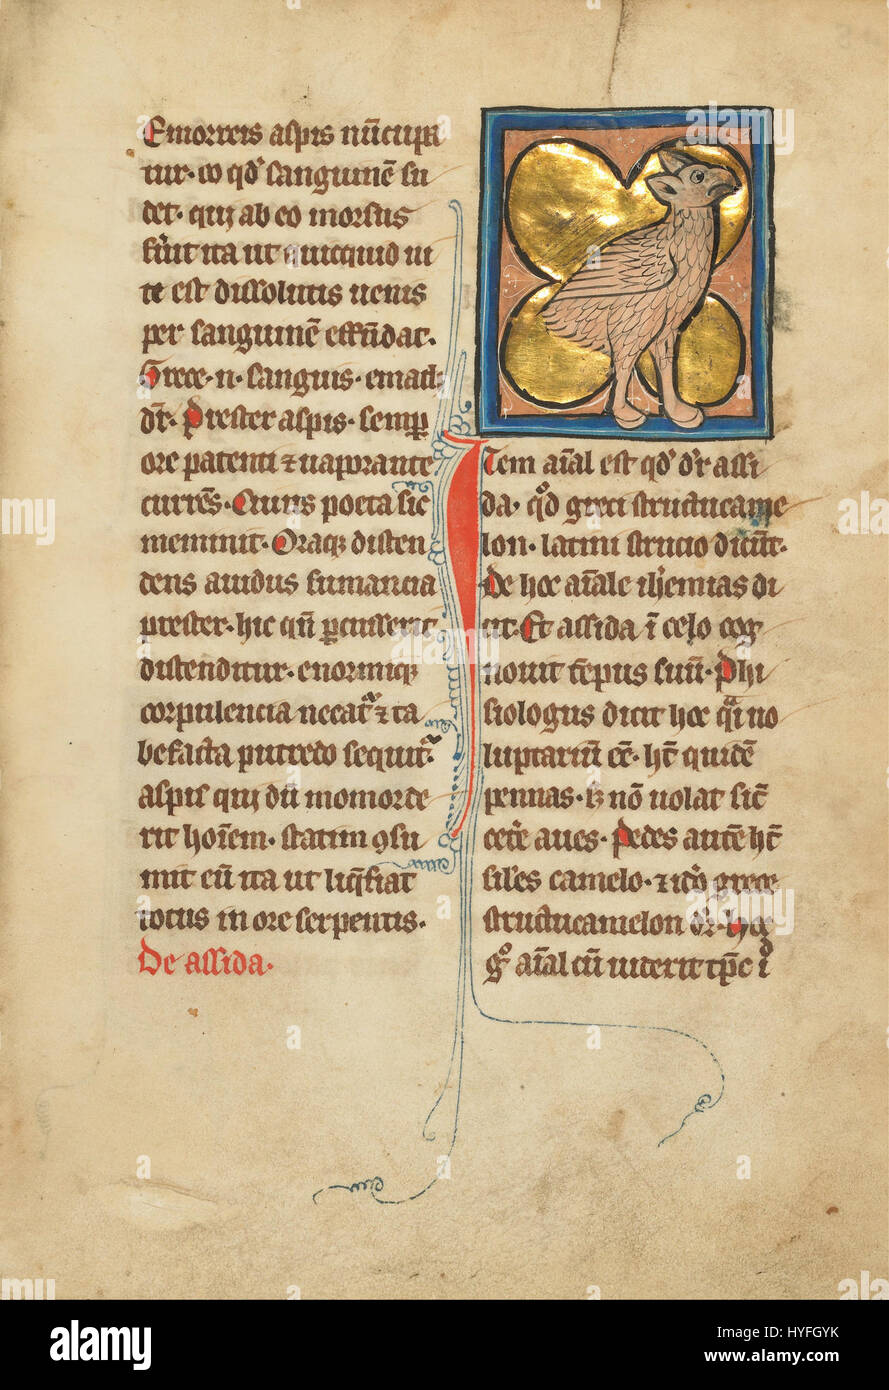 Emorreis aspis nūcupa
tur· eo qd' sanguinē su
det· qui ab eo morsus
fu'it ita ut quicquid ui
te est dissolutis uenis
per sanguinē effūdat·
Grece·n· sanguis· emath
dr̄· Prester aspis· semp
ore patenti ⁊ uaporante
currēs· Cuius poeta sic
meminit· Oraq; disten
dens auidus fumancia
prester· hic qn̄ pcusserit
distenditur· enormiq;
corpulencia necat' ⁊ ta
befacta putredo sequit'·
aspis qui dū momorde
rit hoīem· statim ꝯsu
mit eū ita ut liq̄fiat
totus in ore serpentis·
De assida·
Item aīal est qd' dr̄ assi
da· qd' greci structucame
lon· latini strucio dicūt·
De hoc aīale iheremias di
cit· Et assida ī celo cog
nouit tēpus suū· Phi
siologus dicit hoc q̄i uo
luptariū eē· hēt quidē
pennas· sꝫ nō uolat sic̄
cetere aues· Pedes autē hēt
siles camelo· ⁊ ido grece
structucamelon dr̄· hoc
g° aīal cū uiderit tp̄c i
a
alamy
Image ID: HYFGYK
www.alamy.com